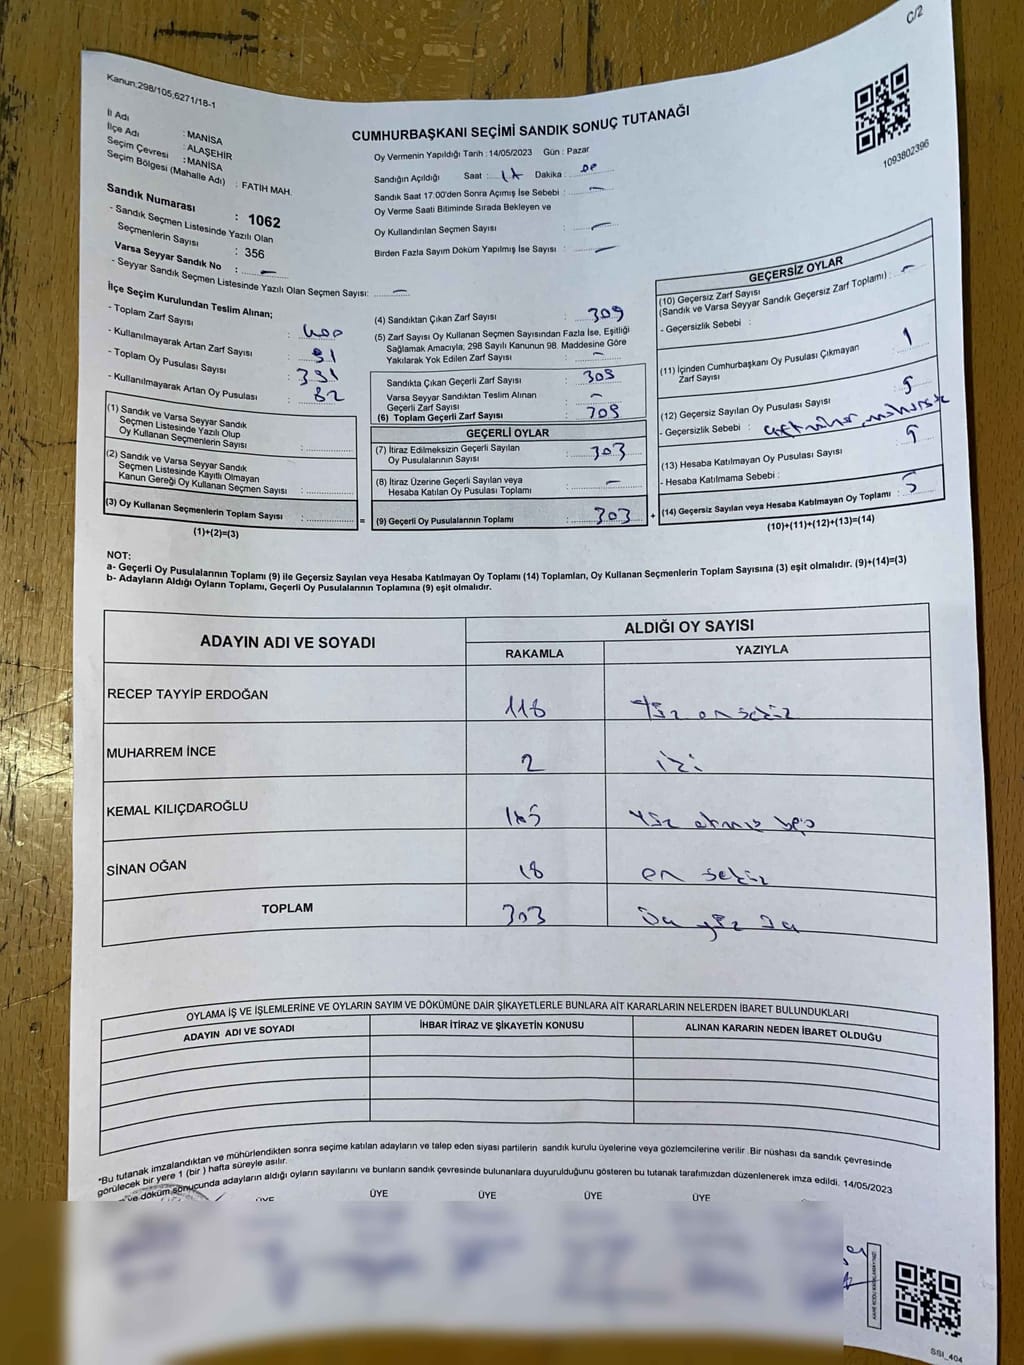 C/2
Kanun:298/105,6271/18-1
CUMHURBAŞKANI SEÇİMİ SANDIK SONUÇ TUTANAĞI
1093802396
İl Adı : MANİSA
İlçe Adı : ALAŞEHİR
Seçim Çevresi : MANİSA
Seçim Bölgesi (Mahalle Adı) : FATİH MAH.
Sandık Numarası : 1062
- Sandık Seçmen Listesinde Yazılı Olan
Seçmenlerin Sayısı : 356
Varsa Seyyar Sandık No : —
- Seyyar Sandık Seçmen Listesinde Yazılı Olan Seçmen Sayısı: —
Oy Vermenin Yapıldığı Tarih :14/05/2023 Gün : Pazar
Sandığın Açıldığı Saat : 17 Dakika : 00
Sandık Saat 17:00'den Sonra Açımış İse Sebebi : —
Oy Verme Saati Bitiminde Sırada Bekleyen ve
Oy Kullandırılan Seçmen Sayısı : —
Birden Fazla Sayım Döküm Yapılmış İse Sayısı : —
İlçe Seçim Kurulundan Teslim Alınan;
- Toplam Zarf Sayısı : 400
- Kullanılmayarak Artan Zarf Sayısı : 91
- Toplam Oy Pusulası Sayısı : 391
- Kullanılmayarak Artan Oy Pusulası : 82
(1) Sandık ve Varsa Seyyar Sandık
Seçmen Listesinde Yazılı Olup
Oy Kullanan Seçmenlerin Sayısı :
(2) Sandık ve Varsa Seyyar Sandık
Seçmen Listesinde Kayıtlı Olmayan
Kanun Gereği Oy Kullanan Seçmen Sayısı :
(3) Oy Kullanan Seçmenlerin Toplam Sayısı : =
(1)+(2)=(3)
(4) Sandıktan Çıkan Zarf Sayısı : 309
(5) Zarf Sayısı Oy Kullanan Seçmen Sayısından Fazla İse, Eşitliği
Sağlamak Amacıyla, 298 Sayılı Kanunun 98. Maddesine Göre
Yakılarak Yok Edilen Zarf Sayısı : —
Sandıkta Çıkan Geçerli Zarf Sayısı : 309
Varsa Seyyar Sandıktan Teslim Alınan
Geçerli Zarf Sayısı : —
(6) Toplam Geçerli Zarf Sayısı : 309
GEÇERLİ OYLAR
(7) İtiraz Edilmeksizin Geçerli Sayılan
Oy Pusulalarının Sayısı : 303
(8) İtiraz Üzerine Geçerli Sayılan veya
Hesaba Katılan Oy Pusulası Toplamı : —
(9) Geçerli Oy Pusulalarının Toplamı : 303 +
GEÇERSİZ OYLAR
(10) Geçersiz Zarf Sayısı
(Sandık ve Varsa Seyyar Sandık Geçersiz Zarf Toplamı) : —
- Geçersizlik Sebebi :
(11) İçinden Cumhurbaşkanı Oy Pusulası Çıkmayan
Zarf Sayısı : 1
(12) Geçersiz Sayılan Oy Pusulası Sayısı :
- Geçersizlik Sebebi :
(13) Hesaba Katılmayan Oy Pusulası Sayısı :
- Hesaba Katılmama Sebebi :
(14) Geçersiz Sayılan veya Hesaba Katılmayan Oy Toplamı :
(10)+(11)+(12)+(13)=(14)
NOT:
a- Geçerli Oy Pusulalarının Toplamı (9) ile Geçersiz Sayılan veya Hesaba Katılmayan Oy Toplamı (14) Toplamları, Oy Kullanan Seçmenlerin Toplam Sayısına (3) eşit olmalıdır. (9)+(14)=(3)
b- Adayların Aldığı Oyların Toplamı, Geçerli Oy Pusulalarının Toplamına (9) eşit olmalıdır.
ADAYIN ADI VE SOYADI
ALDIĞI OY SAYISI
RAKAMLA YAZIYLA
RECEP TAYYİP ERDOĞAN 118 Yüz on sekiz
MUHARREM İNCE 2 iki
KEMAL KILIÇDAROĞLU 165 Yüz atmış beş
SİNAN OĞAN 18 on sekiz
TOPLAM 303 Üç yüz üç
OYLAMA İŞ VE İŞLEMLERİNE VE OYLARIN SAYIM VE DÖKÜMÜNE DAİR ŞİKAYETLERLE BUNLARA AİT KARARLARIN NELERDEN İBARET BULUNDUKLARI
ADAYIN ADI VE SOYADI İHBAR İTİRAZ VE ŞİKAYETİN KONUSU ALINAN KARARIN NEDEN İBARET OLDUĞU
*Bu tutanak imzalandıktan ve mühürlendikten sonra seçime katılan adayların ve talep eden siyasi partilerin sandık kurulu üyelerine veya gözlemcilerine verilir .Bir nüshası da sandık çevresinde
görülecek bir yere 1 (bir ) hafta süreyle asılır.
ve döküm sonucunda adayların aldığı oyların sayılarını ve bunların sandık çevresinde bulunanlara duyurulduğunu gösteren bu tutanak tarafımızdan düzenlenerek imza edildi. 14/05/2023
ÜYE ÜYE ÜYE ÜYE ÜYE
SSI_404